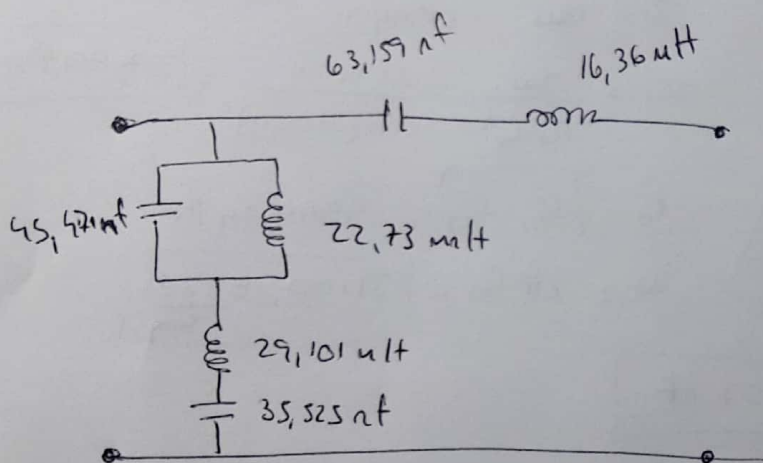 63,159 nf
16,36 mH
45,471 nf
22,73 mH
29,101 mH
35,525 nf